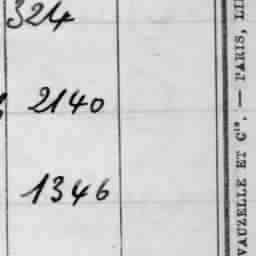 324
2140
1346
VAUZELLE ET Cie. — PARIS, LI